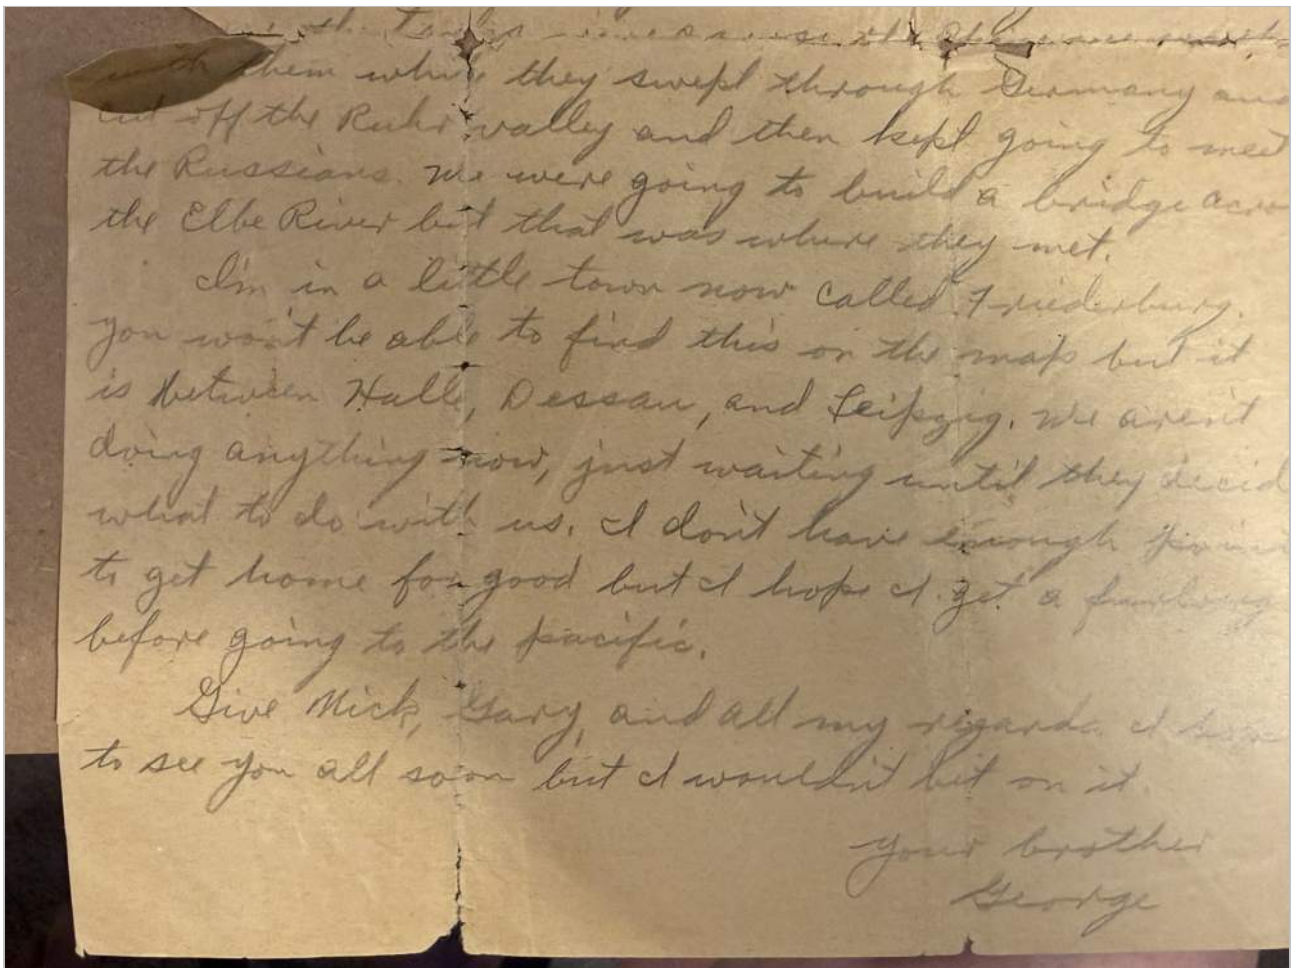 with them while they swept through Germany and
cut off the Ruhr valley and then kept going to meet
the Russians. We were going to build a bridge
the Elbe River but that was where they met.
I'm in a little town now called Friederburg.
You won't be able to find this on the map but it
is between Halle, Dessau, and Leipzig. We aren't
doing anything now, just waiting until they decid
what to do with us. I don't have enough
to get home for good but I hope I get a
before going to the pacific.
Give Mick, Gary, and all my regards. I
to see you all soon but I wouldn't bet on it.
Your brother
George